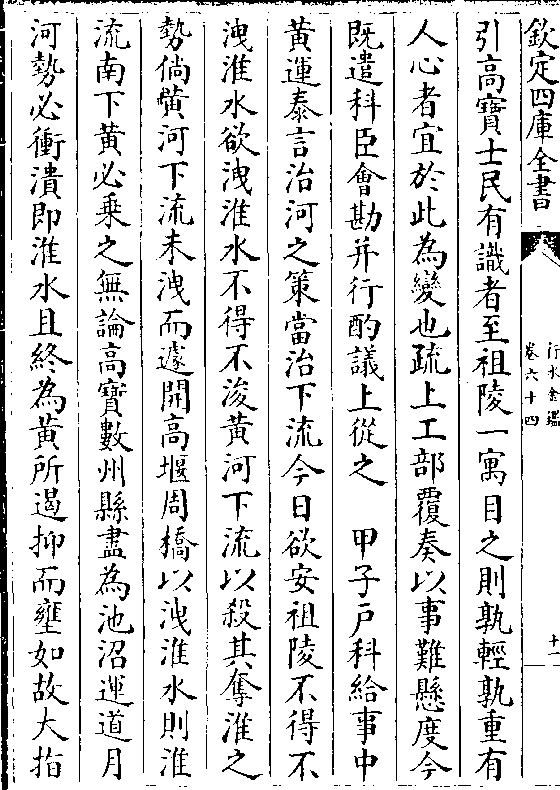 欽定四庫全書
行水金鑑
卷六十四
十一
引高寶士民有識者至祖陵一寓目之則孰輕孰重有
人心者宜於此為變也疏上工部覆奏以事難懸度今
既遣科臣會勘并行酌議上從之　甲子戶科給事中
黃運泰言治河之策當治下流今日欲安祖陵不得不
洩淮水欲洩淮水不得不浚黃河下流以殺其奪淮之
勢倘黃河下流未洩而遽開高堰周橋以洩淮水則淮
流南下黃必乘之無論高寶數州縣盡為池沼運道月
河勢必衝潰即淮水且終為黃所遏抑而壅如故大指